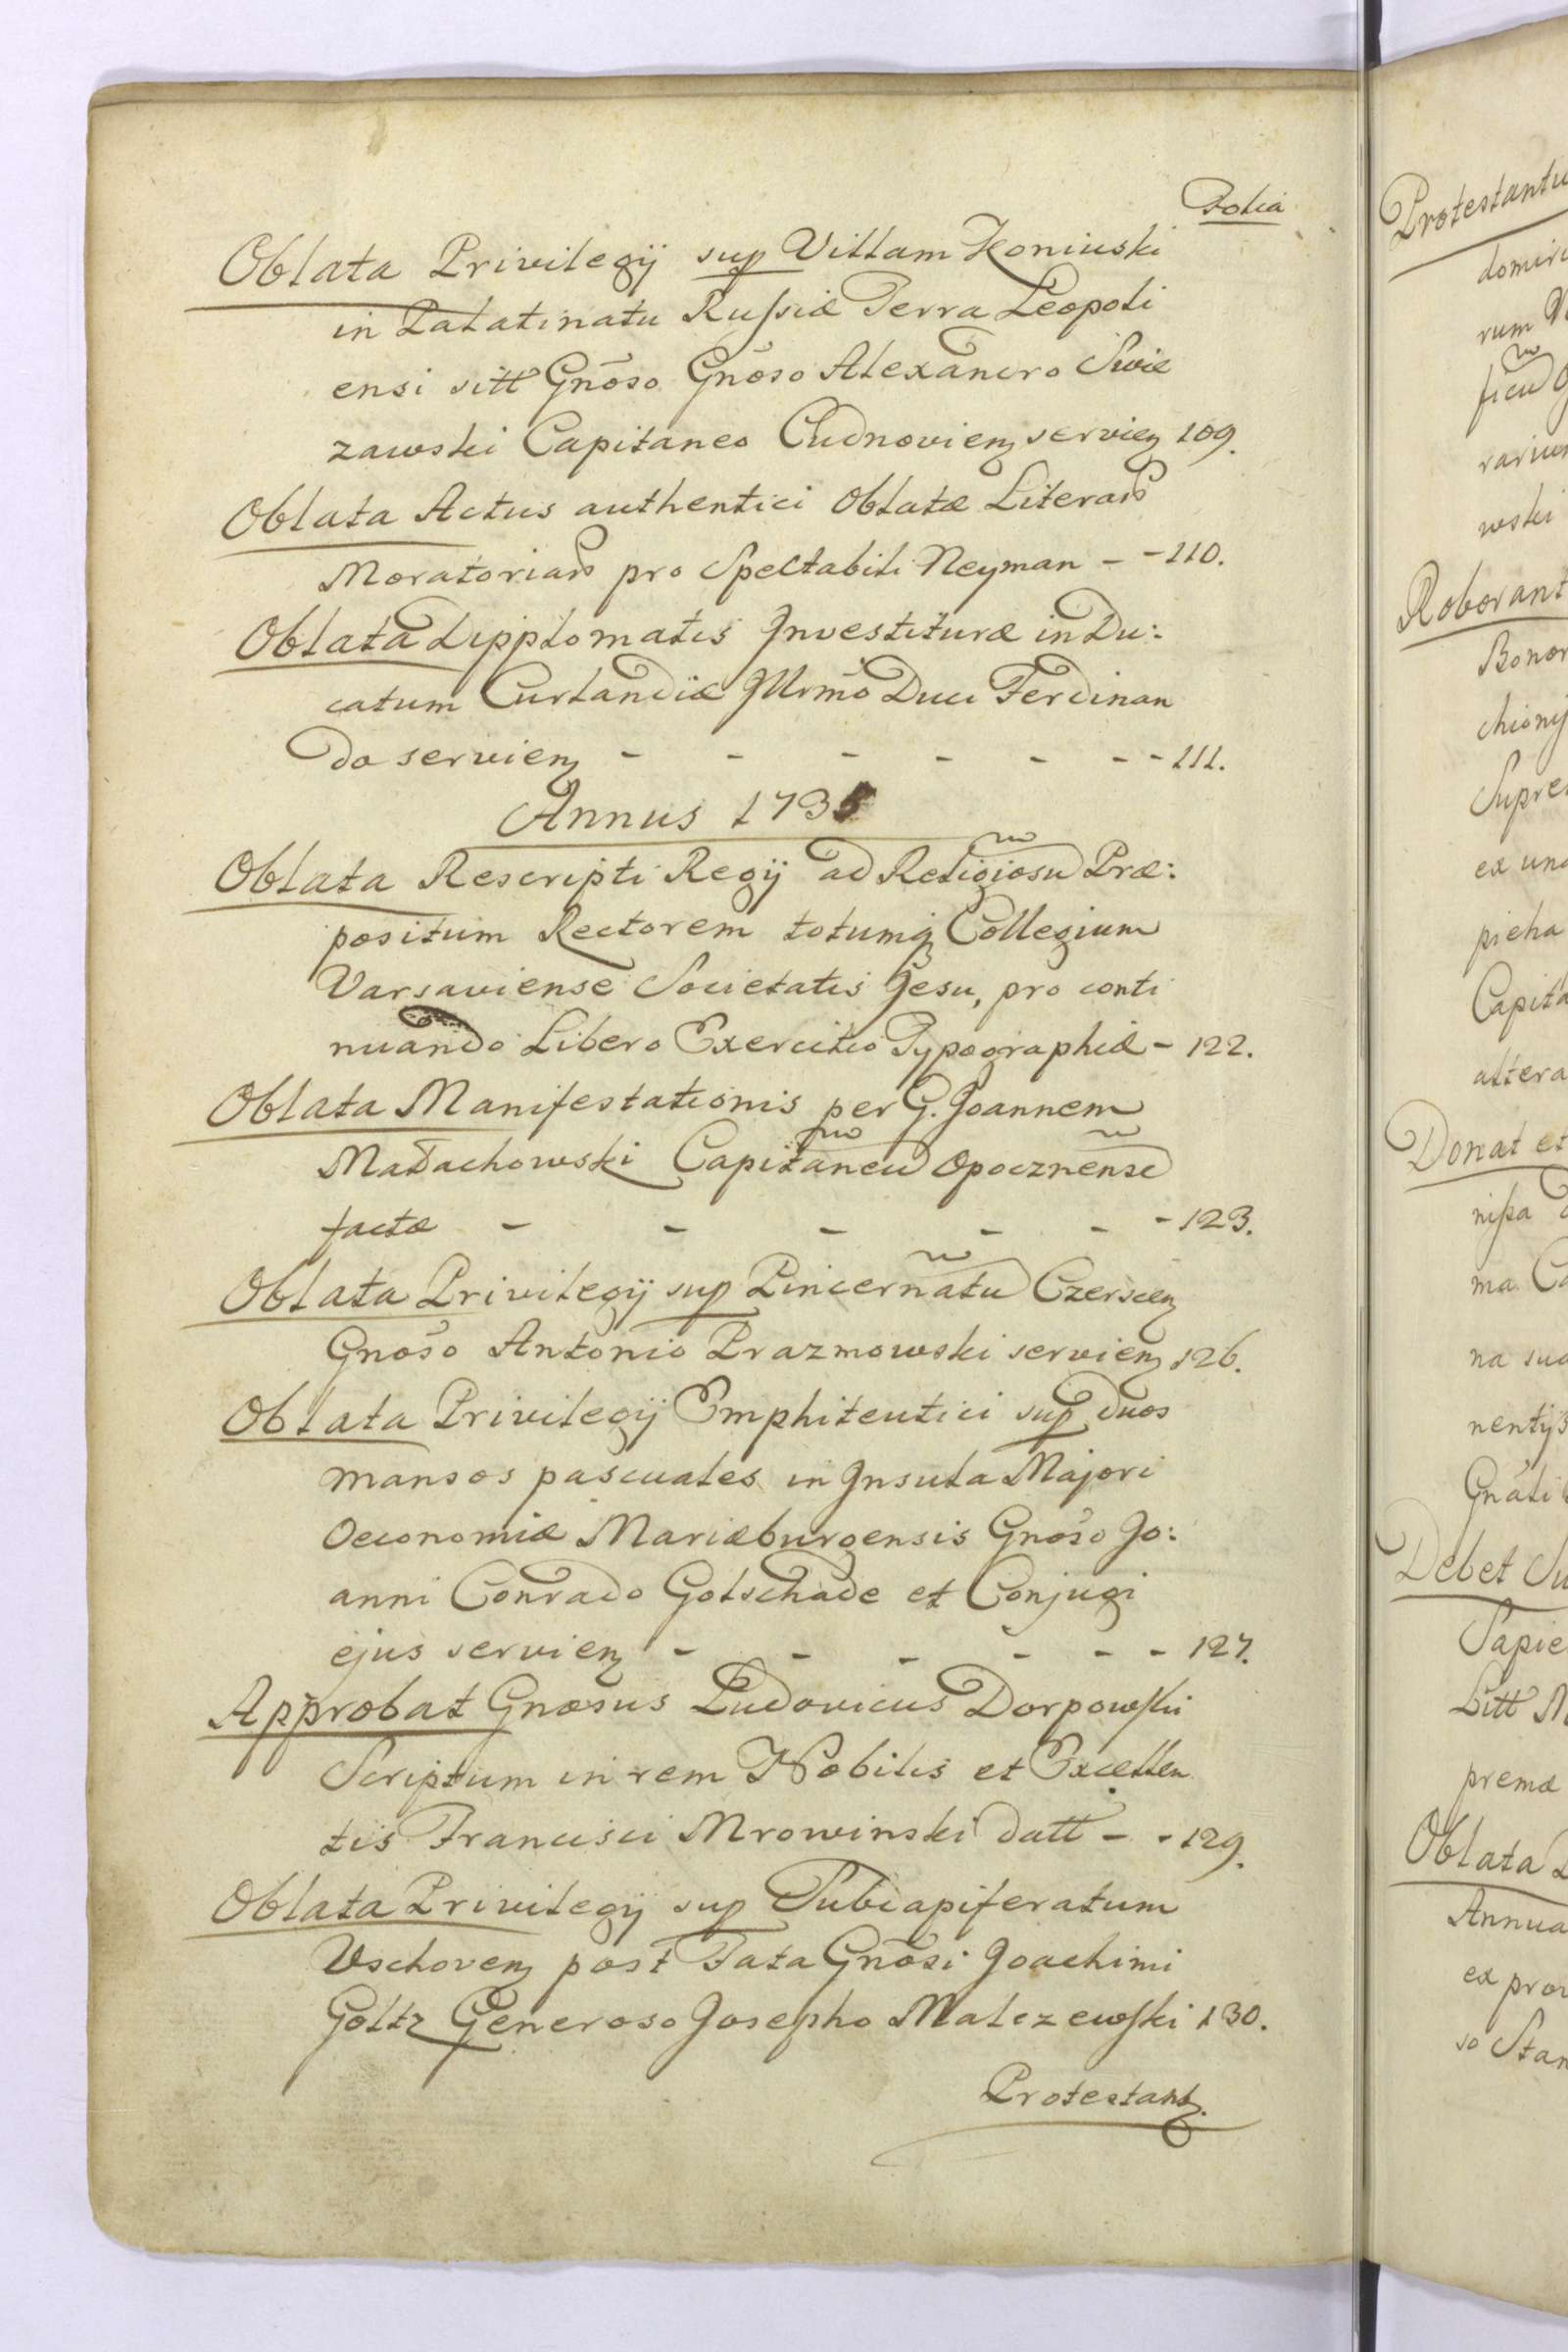 Folia
Oblata Privilegij sup Villam Koniuski
in Palatinatu Russiæ Terra Leopoli
ensi sitt Gnõso Gnõso Alexandro Swie
zawski Capitaneo Cudnovien servien 109.
Oblata Actus authentici Oblatæ Literar
Moratoriar pro Spectabili Neyman - - 110.
Oblata Dipplomatis Investituræ in Du:
catum Curlandiæ Illrmo Duci Ferdinan
do servien - - - - - - - 111.
Annus 1735
Oblata Rescripti Regij ad Religiosu Præ:
positum Rectorem totumq Collegium
Varsaviense Societatis Jesu, pro conti
nuando Libero Exercitio Typographiæ - 122.
Oblata Manifestationis per G. Joannem
Małachowski Capitaneu Opocznense
factæ - - - - - - 123.
Oblata Privilegij sup Pincernatu Czerscien
Gnoso Antonio Prazmowski servien 126.
Oblata Privilegij Emphiteutici sup duos
mansos pascuales in Insula Majori
Oeconomiæ Mariæburgensis Gnoso Jo:
anni Conrado Gotschade et Conjugi
ejus servien - - - - - - 127.
Approbat Gnosus Ludovicus Dorpowski
Scriptum in rem Nobilis et Excellen
tis Francisci Mrowinski datt - - 129.
Oblata Privilegij sup Subdapiferatum
Vschoven post Fata Gnõsi Joachimi
Goltz Generoso Josepho Malczewski 130.
Protestant.
Protestantu
domini
rum
ficu
rariu
wski
Roborant
Bonor
chiony
Supre
ex una
pieha
Capita
altera
Donat et
nissa
ma Ca
na sua
nentijs
Gnãli
Debet Su
Sapie
Litt M
premæ
Oblata
Annua
ex prov
so Stan